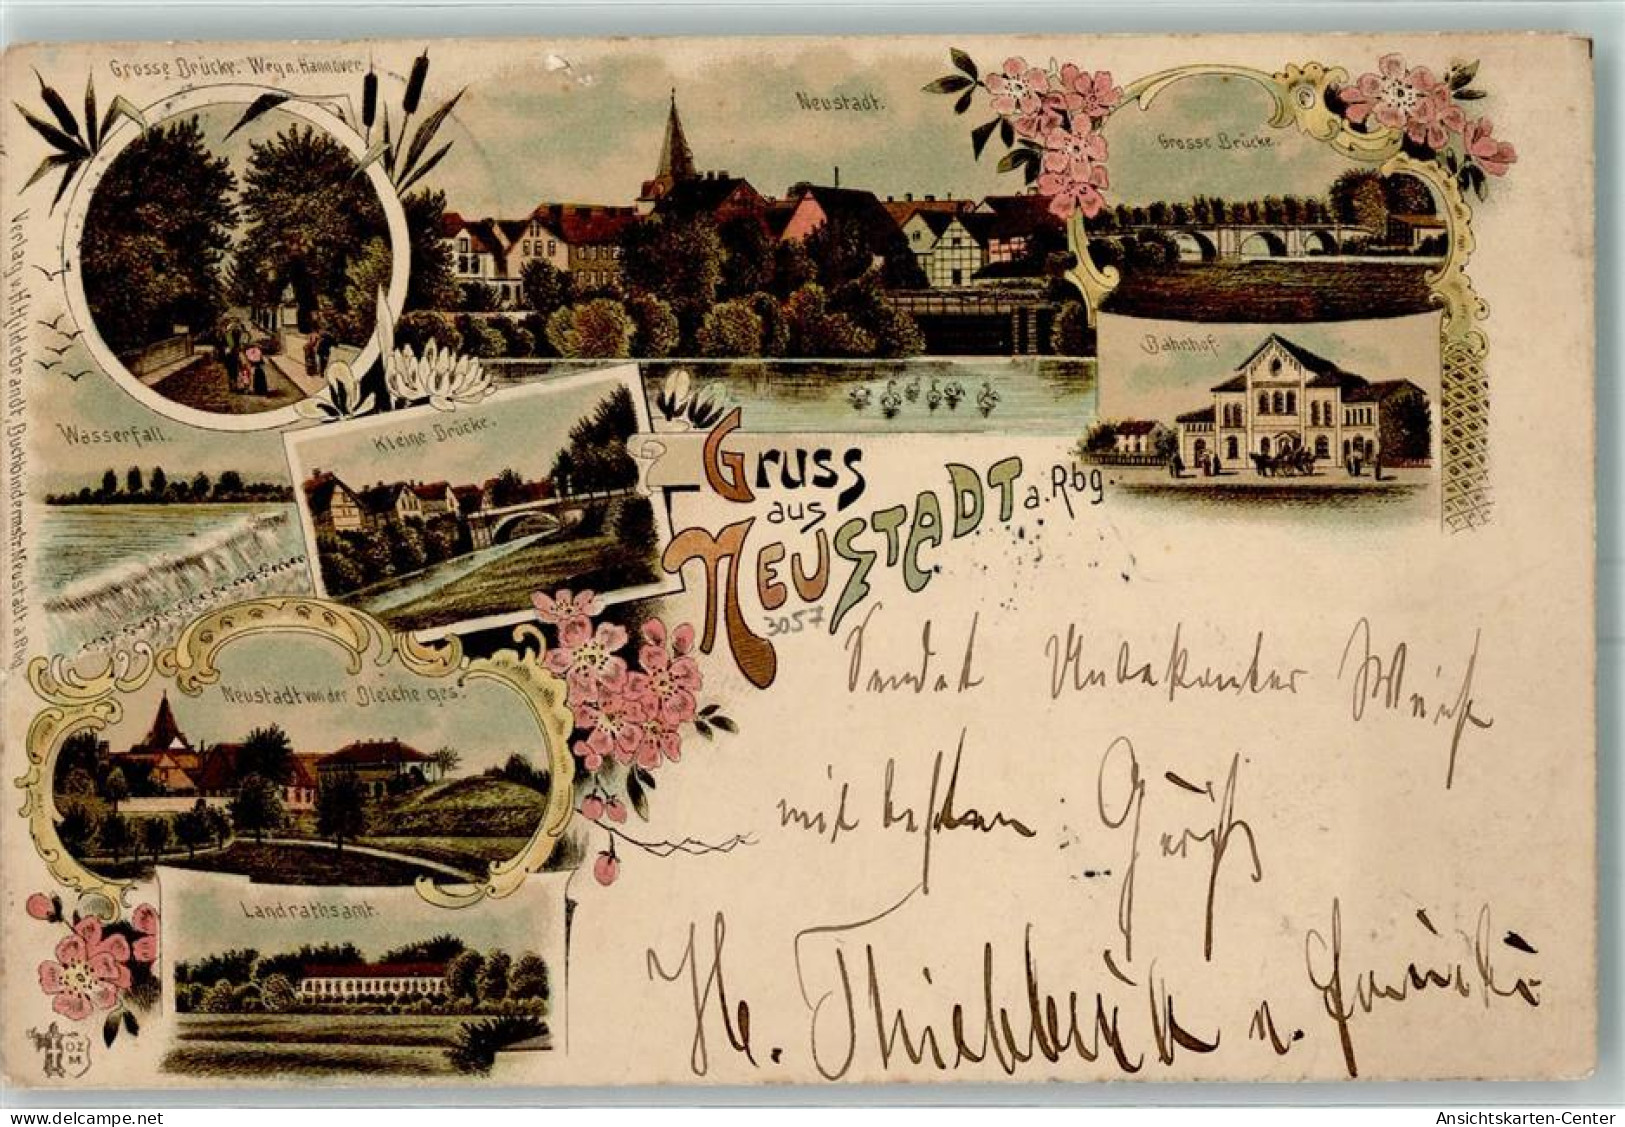 Grosse Brücke. Weg n. Hannover.
Neustadt.
Grosse Brücke.
Bahnhof.
Wasserfall.
Kleine Brücke.
Gruss
aus
Neustadt a. Rbg.
3057
Verlag v. H. Hildebrandt, Buchbindermstr. Neustadt a Rbg.
Neustadt von der Bleiche ges.
Landrathsamt.
OZ
M
Sendet Unbekanter Weise
mit besten
H. u.
Ansichtskarten-Center